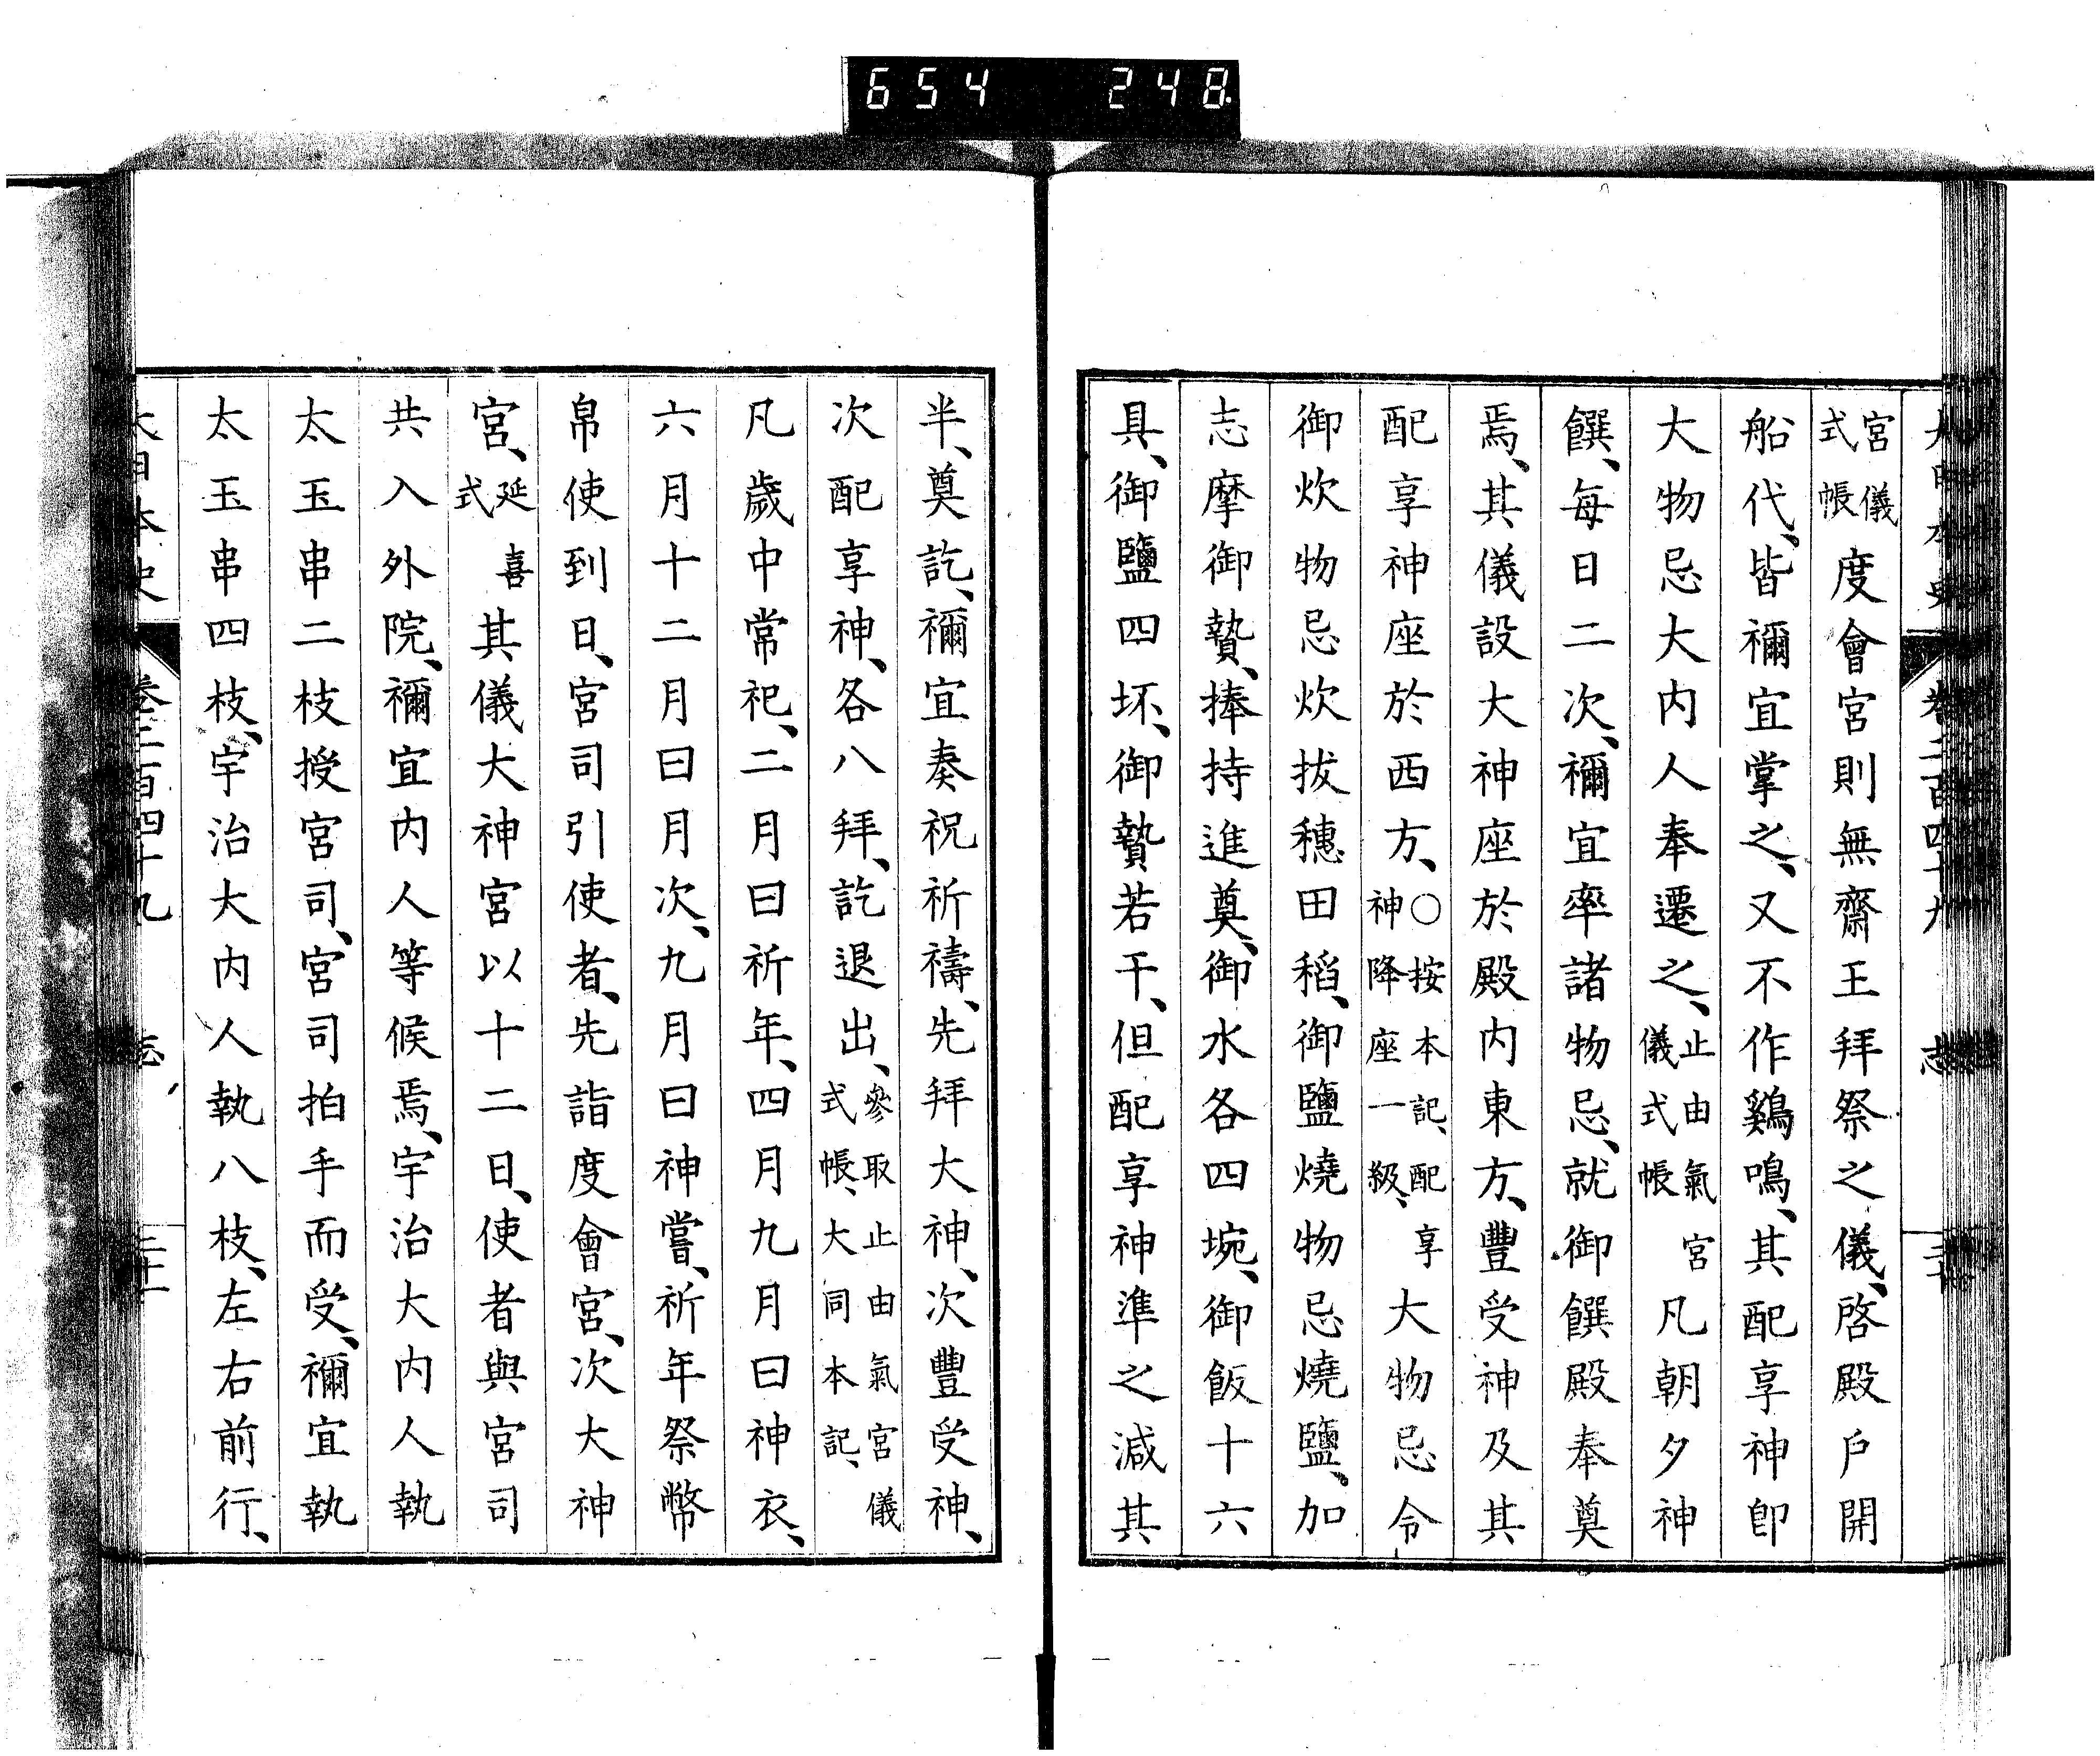 654 248
大日本史 卷二百四十九 志
宮儀式帳度會宮則無齋王拜祭之儀、啓殿戶開
船代、皆禰宜掌之、又不作鷄鳴、其配享神卽
大物忌大內人奉遷之、止由氣宮儀式帳凡朝夕神
饌、每日二次、禰宜率諸物忌、就御饌殿奉奠
焉、其儀設大神座於殿內東方、豐受神及其
配享神座於西方、○按本記、配享神降座一級、大物忌令
御炊物忌炊拔穗田稻、御鹽燒物忌燒鹽、加
志摩御贄、捧持進奠、御水各四埦、御飯十六
具、御鹽四坏、御贄若干、但配享神準之減其
半、奠訖、禰宜奏祝祈禱、先拜大神、次豐受神、
次配享神、各八拜、訖退出、參取止由氣宮儀式帳、大同本記、
凡歲中常祀、二月曰祈年、四月九月曰神衣、
六月十二月曰月次、九月曰神嘗、祈年祭幣
帛使到日、宮司引使者、先詣度會宮、次大神
宮、延喜式其儀大神宮以十二日、使者與宮司
共入外院、禰宜內人等候焉、宇治大內人執
太玉串二枝授宮司、宮司拍手而受、禰宜執
太玉串四枝、宇治大內人執八枝、左右前行、
大日本史 卷二百四十九 志